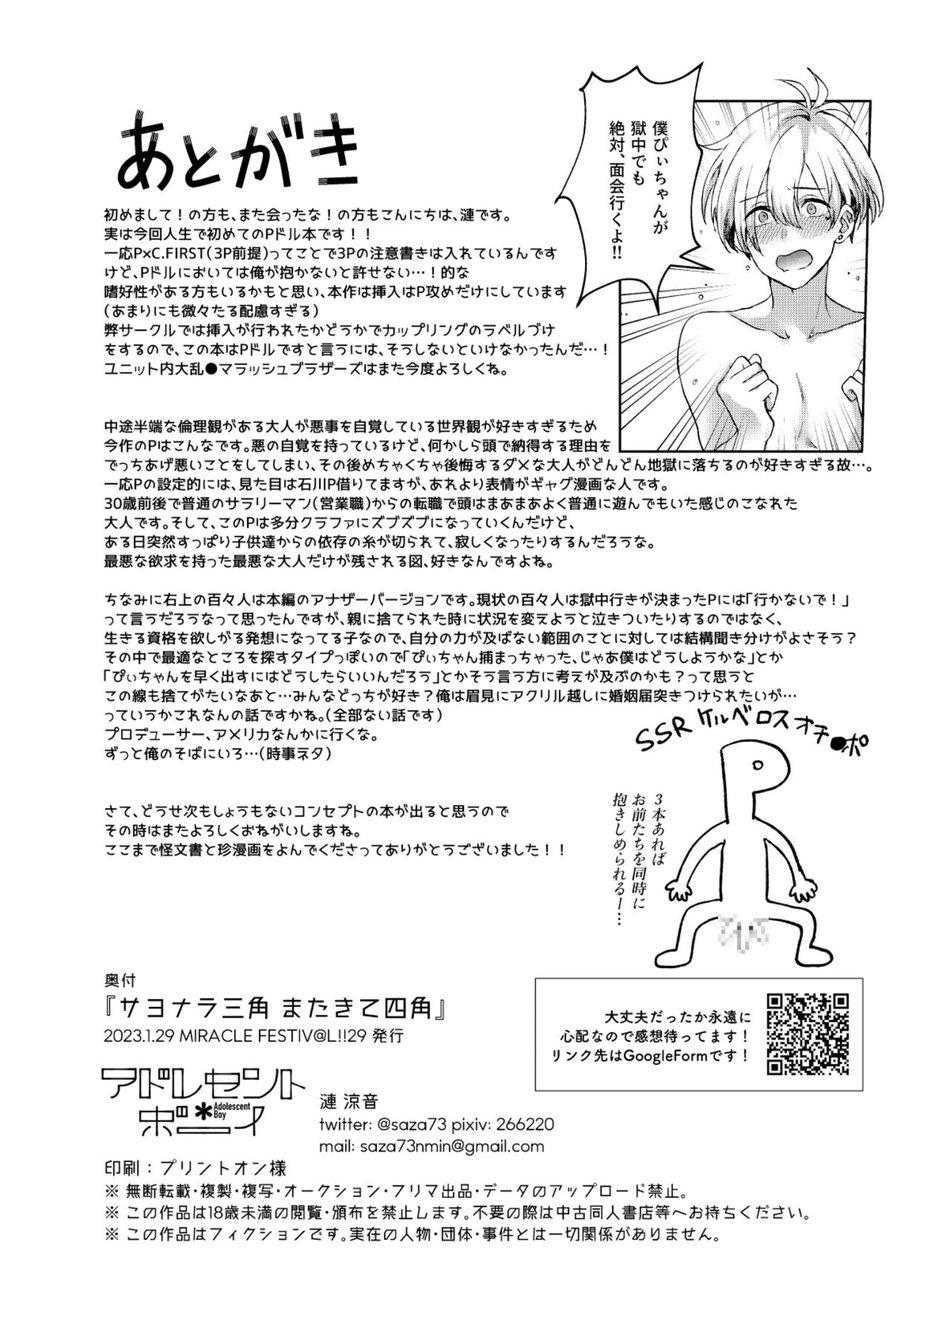 あとがき
僕ぴぃちゃんが
獄中でも
絶対、面会行くよ!!
初めまして！の方も、また会ったな！の方もこんにちは、漣です。
実は今回人生で初めてのPドル本です！！
一応P×C.FIRST(3P前提)ってことで3Pの注意書きは入れているんです
けど、Pドルにおいては俺が抱かないと許せない…！的な
嗜好性がある方もいるかもと思い、本作は挿入はP攻めだけにしています
(あまりにも微々たる配慮すぎる)
弊サークルでは挿入が行われたかどうかでカップリングのラベルづけ
をするので、この本はPドルですと言うには、そうしないといけなかったんだ…！
ユニット内大乱●マラッシュブラザーズはまた今度よろしくね。
中途半端な倫理観がある大人が悪事を自覚している世界観が好きすぎるため
今作のPはこんなです。悪の自覚を持っているけど、何かしら頭で納得する理由を
でっちあげ悪いことをしてしまい、その後めちゃくちゃ後悔するダメな大人がどんどん地獄に落ちるのが好きすぎる故…。
一応Pの設定的には、見た目は石川P借りてますが、あれより表情がギャグ漫画な人です。
30歳前後で普通のサラリーマン(営業職)からの転職で頭はまあまあよく普通に遊んでもいた感じのこなれた
大人です。そして、このPは多分クラファにズブズブになっていくんだけど、
ある日突然すっぱり子供達からの依存の糸が切られて、寂しくなったりするんだろうな。
最悪な欲求を持った最悪な大人だけが残される図、好きなんですよね。
ちなみに右上の百々人は本編のアナザーバージョンです。現状の百々人は獄中行きが決まったPには「行かないで！」
って言うだろうなって思ったんですが、親に捨てられた時に状況を変えようと泣きついたりするのではなく、
生きる資格を欲しがる発想になってる子なので、自分の力が及ばない範囲のことに対しては結構聞き分けがよさそう？
その中で最適なところを探すタイプっぽいので「ぴぃちゃん捕まっちゃった、じゃあ僕はどうしようかな」とか
「ぴぃちゃんを早く出すにはどうしたらいいんだろう」とかそう言う方に考えが及ぶのかも？って思うと
この線も捨てがたいなあと…みんなどっちが好き？俺は眉見にアクリル越しに婚姻届突きつけられたいが…
っていうかこれなんの話ですかね。(全部ない話です)
プロデューサー、アメリカなんかに行くな。
ずっと俺のそばにいろ…(時事ネタ)
SSRケルベロスオチ●ポ
3本あれば
お前たちを同時に
抱きしめられるー…
さて、どうせ次もしょうもないコンセプトの本が出ると思うので
その時はまたよろしくおねがいしますね。
ここまで怪文書と珍漫画をよんでくださってありがとうございました！！
奥付
『サヨナラ三角 またきて四角』
2023.1.29 MIRACLE FESTIV@L!!29 発行
大丈夫だったか永遠に
心配なので感想待ってます！
リンク先はGoogleFormです！
アドレセント
ボーイ
Adolescent
Boy
漣 涼音
twitter: @saza73 pixiv: 266220
mail: saza73nmin@gmail.com
印刷：プリントオン様
※ 無断転載・複製・複写・オークション・フリマ出品・データのアップロード禁止。
※ この作品は18歳未満の閲覧・頒布を禁止します。不要の際は中古同人書店等へお持ちください。
※ この作品はフィクションです。実在の人物・団体・事件とは一切関係がありません。